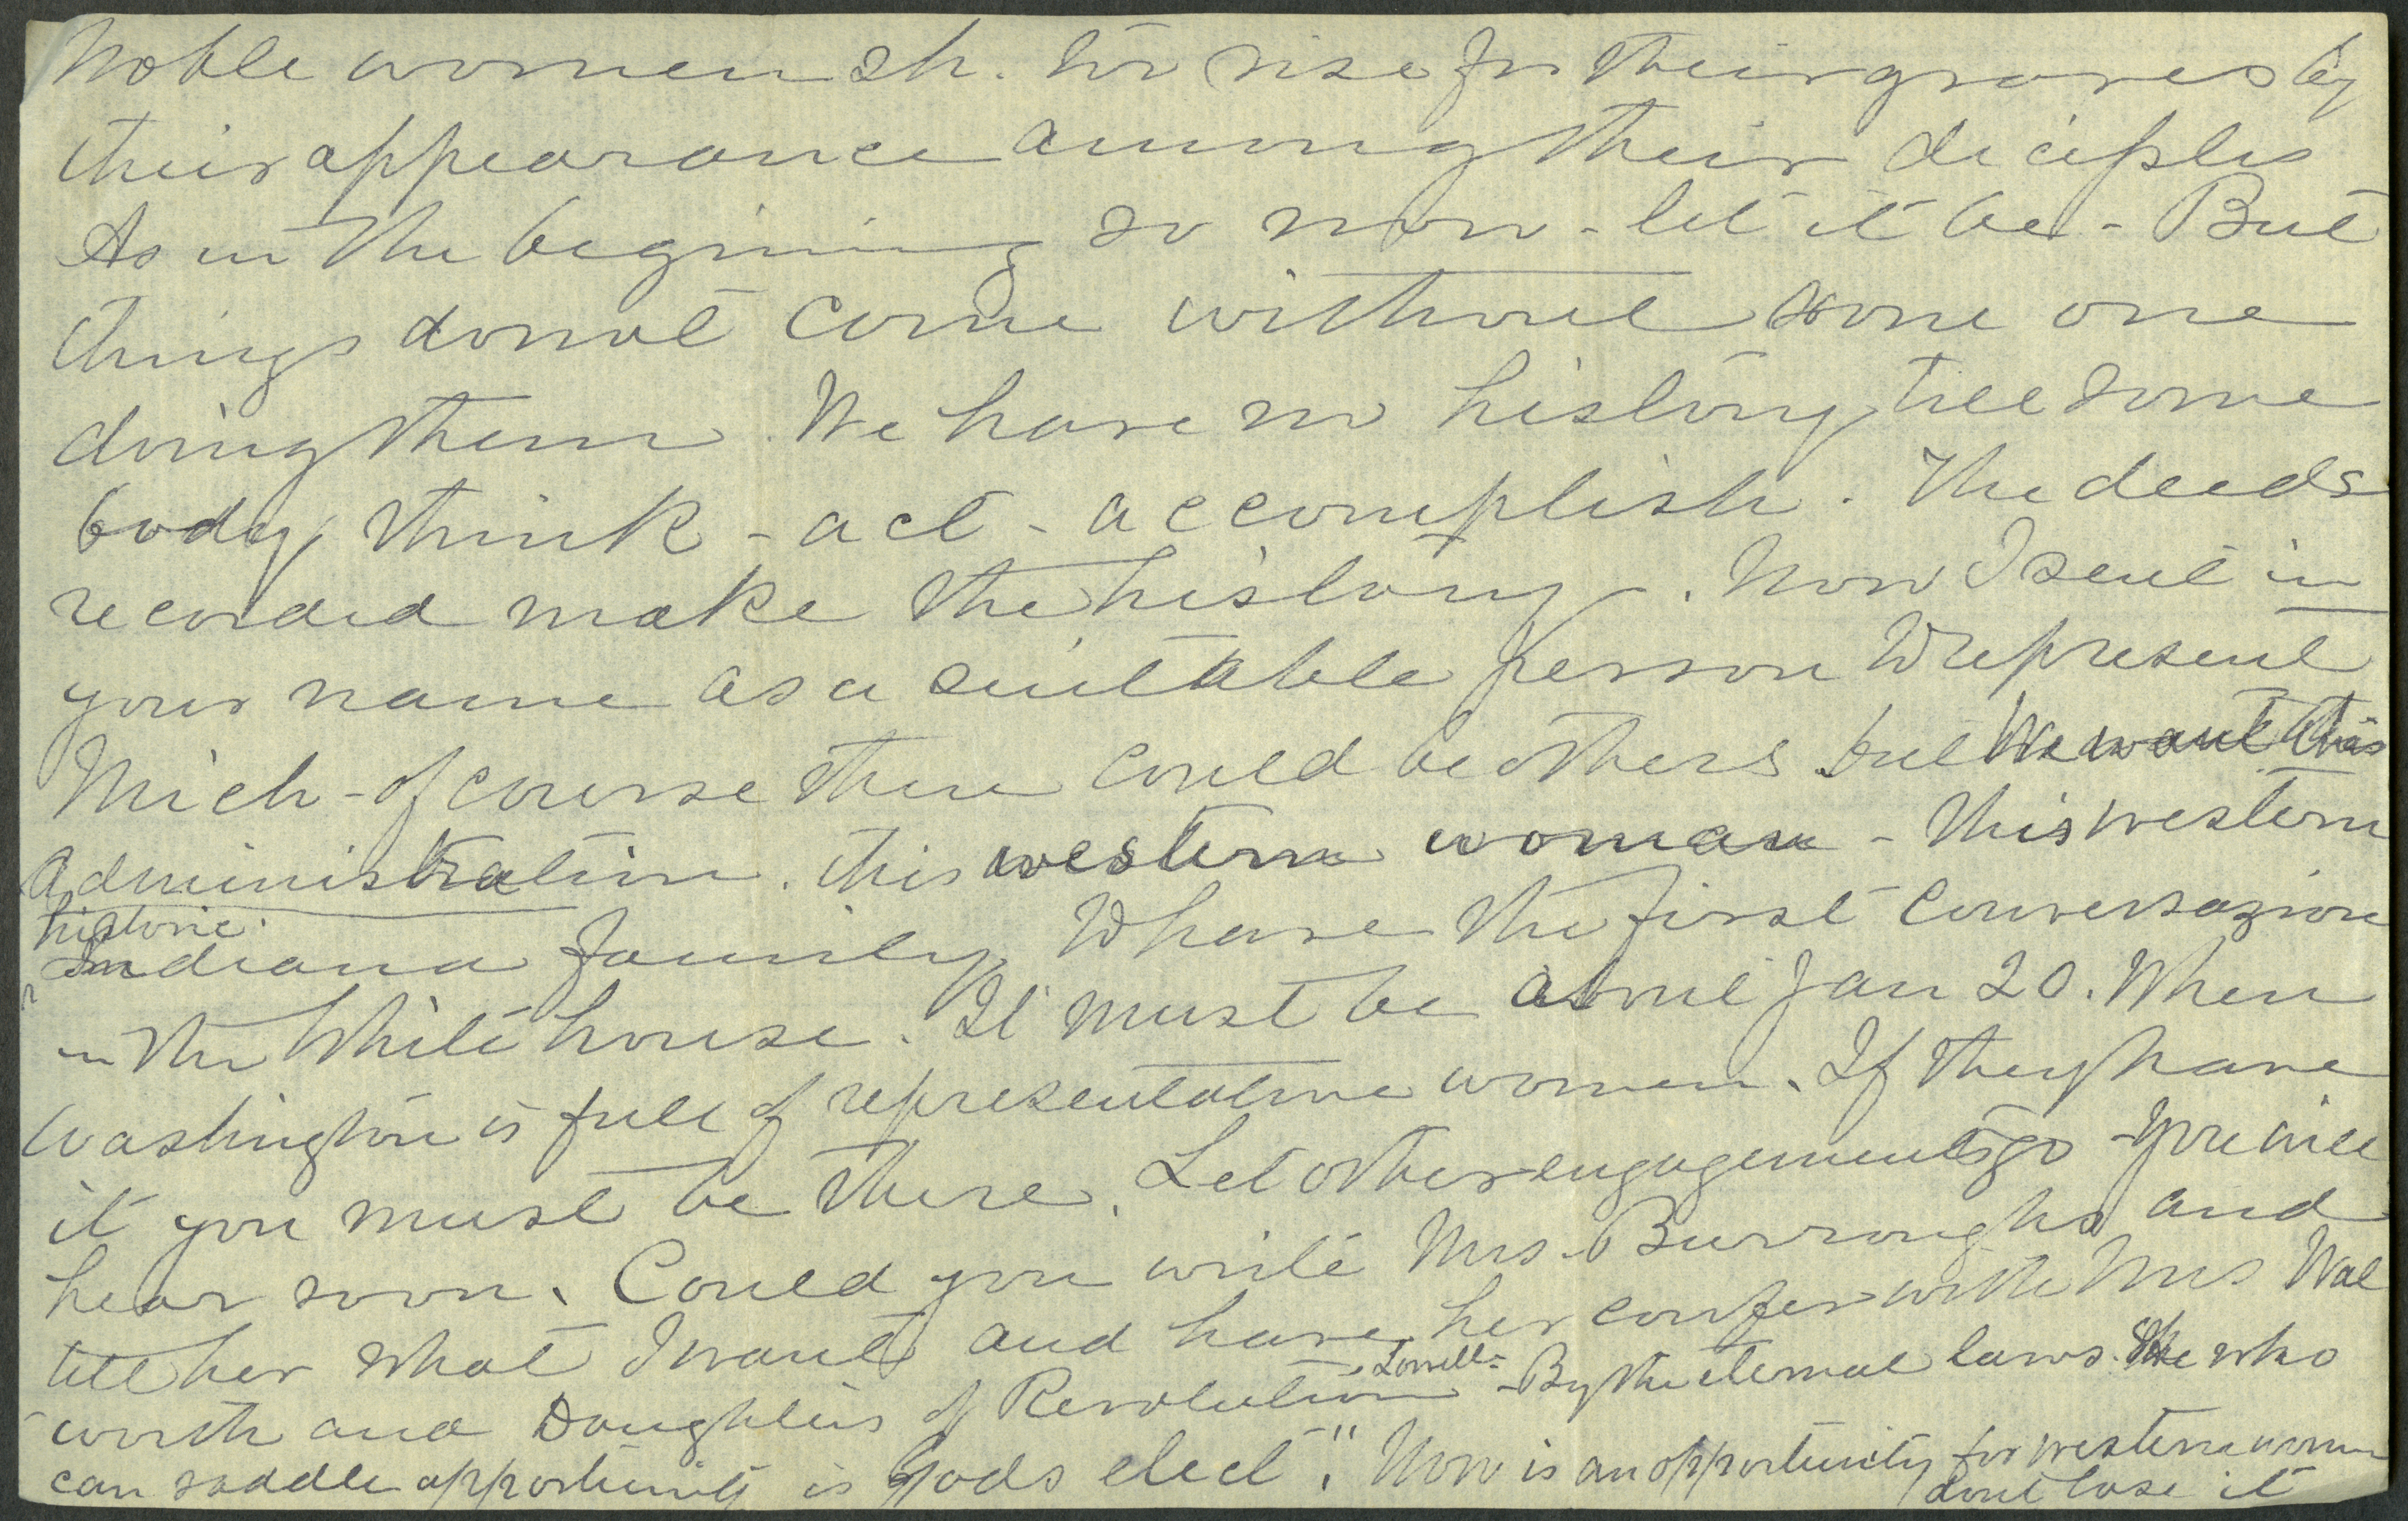 Noble women sh. too rise fr their graves by
their appearance among their deciples
As in the begining so now - let it be - But
things donot come without some one
doing them. We have no history till some
body think - act - accomplish. The deeds
recorded make the history. Now I sent in
your name as a suitable person to represent
Mich - of course there could be others but We want this
administration. this western woman - this western
historic
Indiana family to have the first conversazione
in the White house. It must be about Jan 20. When
Washington is full of representative women. If they have
it you must be there. Let other engagements go - you will
hear soon. Could you write Mrs. Burroughs and
tell her what I want and have her confer with Mrs Wal
worth and Daughters of Revolution - Lowell - By the eternal laws. She who
can saddle opportunity is Gods elect". Now is an opportunity for western women
dont lose it